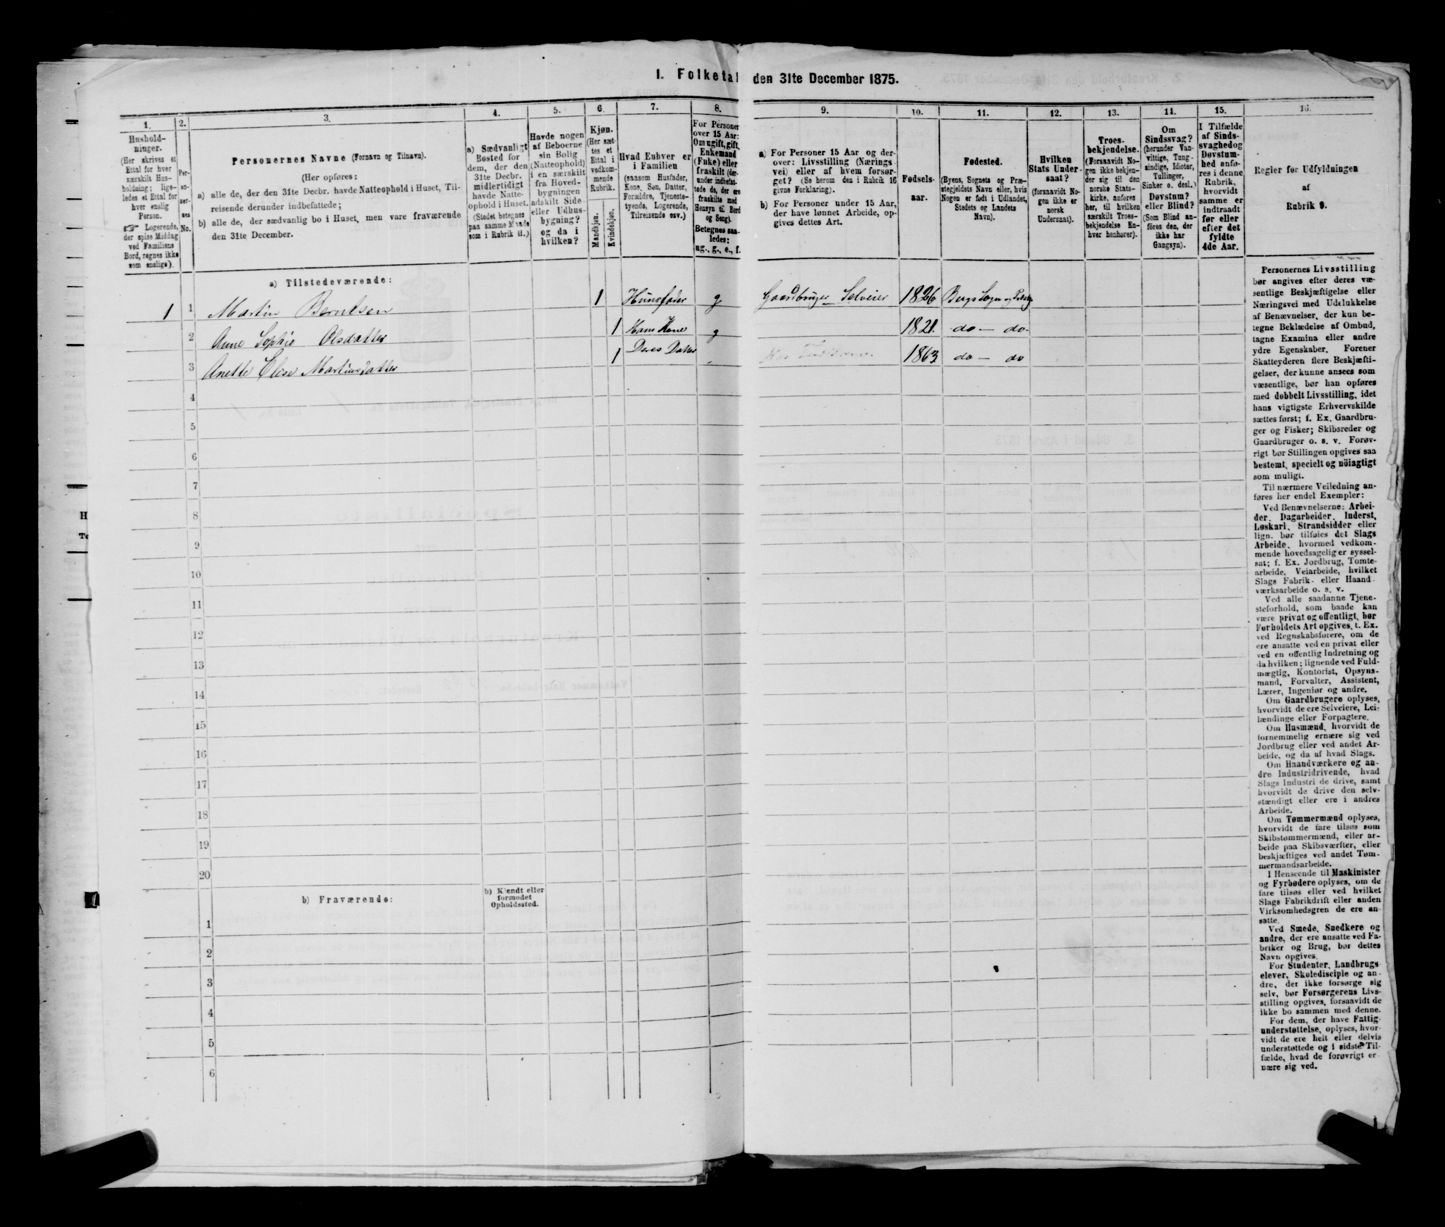 I. Folketal den 31te December 1875.
1.
2.
3.
4.
5.
6.
7.
8.
9.
10.
11.
12.
13.
14.
15.
16.
Husholdninger.
(Her skrives et
Ettal for hver
særskilt Husholdning;
ligeledes et Ettal for
hver enslig
Person.
Logerende,
der spise Middag
ved Familiens
Bord, regnes ikke
som enslige).
Personernes No.
Personernes Navne (Fornavn og Tilnavn).
(Her opføres:
a) alle de, der den 31te Decbr. havde Natteophold i Huset, Tilreisende derunder indbefattede;
b) alle de, der sædvanlig bo i Huset, men vare fraværende
den 31te December.
a) Sædvanligt
Bosted for
dem, der den
31te Decbr.
midlertidigt
havde Natteophold
i Huset.
(Stedet betegnes
paa samme Maade
som i Rubrik 11.)
Havde nogen
af Beboerne
sin Bolig
(Natteophold)
i en særskilt
fra Hovedbygningen
adskilt Side-
eller Udhusbygning?
og da i
hvilken?
Kjøn.
(Her sættes et
Ettal i
vedkommende
Rubrik.
Mandkjøn.
Kvindekjøn.
Hvad Enhver er
i Familien
(saasom Husfader,
Kone, Søn, Datter,
Forældre, Tjenestetyende,
Logerende,
Tilreisende osv.)
For Personer
over 15 Aar:
Om ugift, gift,
Enkemand
(Enke) eller
fraskilt (derunder
indbefattede de, der ere
fraskilte med
Hensyn til Bord
og Seng).
Betegnes saaledes:
ug., g., e., f.
a) For Personer 15 Aar og derover:
Livsstilling (Næringsvei)
eller af hvem forsørget?
(Se herom den i Rubrik 16
givne Forklaring).
b) For Personer under 15 Aar,
der have lønnet Arbeide, opgives
dettes Art.
Fødselsaar.
Fødested.
(Byens, Sognets og Præstegjeldets
Navn eller, hvis
Nogen er født i Udlandet,
Stedets og Landets
Navn).
Hvilken
Stats Undersaat?
(forsaavidt Nogen
ikke er
norsk
Undersaat).
Troesbekjendelse.
(Forsaavidt Nogen
ikke bekjender
sig til den
norske Statskirke,
anføres
her, til hvilken
særskilt Troesbekjendelse
Enhver
henhører).
Om
Sindssvag?
(herunder Vanvittige,
Tungsindige,
Idioter,
Tullinger,
Sinker o. desl.)
Døvstum?
eller Blind?
(Som Blind anføres
den, der
ikke har
Gangsyn).
I Tilfælde
af Sindssvaghed
og
Døvstumhed
anføres
i denne
Rubrik,
hvorvidt
samme er
indtraadt
før eller
efter det
fyldte
4de Aar.
Regler før Udfyldningen
af
Rubrik 9.
a) Tilstedeværende:
1 1 Martin Berntsen 1 Husefader g Gaardbruger Selveier 1826 Bergs Sogn og
2 Anne Sophie Olsdatter 1 Hans Kone g 1821 do — do
3 Anette Martinsdatter 1 Deres Datter 1863 do — do
4
5
6
7
8
9
10
11
12
13
14
15
16
17
18
19
20
b) Fraværende:
b) Kjendt eller
formodet
Opholdssted.
1
2
3
4
5
6
Personernes Livsstilling
bør angives efter deres væsentlige
Beskjæftigelse eller
Næringsvei med Udelukkelse
af Benævnelser, der kun betegne
Beklædelse af Ombud,
tagne Examina eller andre
ydre Egenskaber. Forener
Skatteyderen flere Beskjæftigelser,
der kunne ansees som
væsentlige, bør han opføres
med dobbelt Livsstilling, idet
hans vigtigste Erhvervskilde
sættes først; f. Ex. Gaardbruger
og Fisker; Skibsreder og
Gaardbruger o. s. v. Forøvrigt
bør Stillingen opgives saa
bestemt, specielt og nöiagtigt
som muligt.
Til nærmere Veiledning anføres
her endel Exempler:
Ved Benævnelserne: Arbeider,
Dagarbeider, Inderst,
Løskarl, Strandsidder eller
lign. bør tilføies det Slags
Arbeide, hvormed vedkommende
hovedsagelig er sysselsat;
f. Ex. Jordbrug, Tomtearbeide,
Veiarbeide, hvilket
Slags Fabrik- eller Haandværksarbeide
o. s. v.
Ved alle saadanne Tjenesteforhold,
som baade kan
være privat og offentligt, bør
Forholdets Art opgives, t. Ex.
ved Regnskabsførere, om de
ere ansatte ved en privat eller
ved en offentlig Indretning og
da hvilken; lignende ved Fuldmægtig,
Kontorist, Opsynsmand,
Forvalter, Assistent,
Lærer, Ingeniør og andre.
Om Gaardbrugere oplyses,
hvorvidt de ere Selveiere, Leilændinge
eller Forpagtere.
Om Husmænd, hvorvidt de
fornemmelig ernære sig ved
Jordbrug eller ved andet Arbeide,
og da af hvad Slags.
Om Haandværkere og andre
Industridrivende, hvad
Slags Industri de drive, samt
hvorvidt de drive den selvstændigt
eller ere i andres
Arbeide.
Om Tømmermænd oplyses,
hvorvidt de fare tilsøs som
Skibstømmermænd, eller arbeide
paa Skibsværfter, eller
beskjæftiges ved andet Tømmermandsarbeide.
I Henseende til Maskinister
og Fyrbødere oplyses, om de
fare tilsøs eller ved hvilket
Slags Fabrikdrift eller anden
Virksomhedsgren de ere ansatte.
Ved Smede, Snedkere og
andre, der ere ansatte ved Fabriker
og Brug, bør dettes
Navn opgives.
For Studenter, Landbrugselever,
Skoledisciple og andre,
der ikke forsørge sig
selv, bør Forsørgerens Livsstilling
opgives, forsaavidt de
ikke bo sammen med denne.
For dem, der have Fattigunderstøttelse,
oplyses, hvorvidt
de ere helt eller delvis
understøttede og i sidste Tilfælde,
hvad de forøvrigt ernære
sig ved.